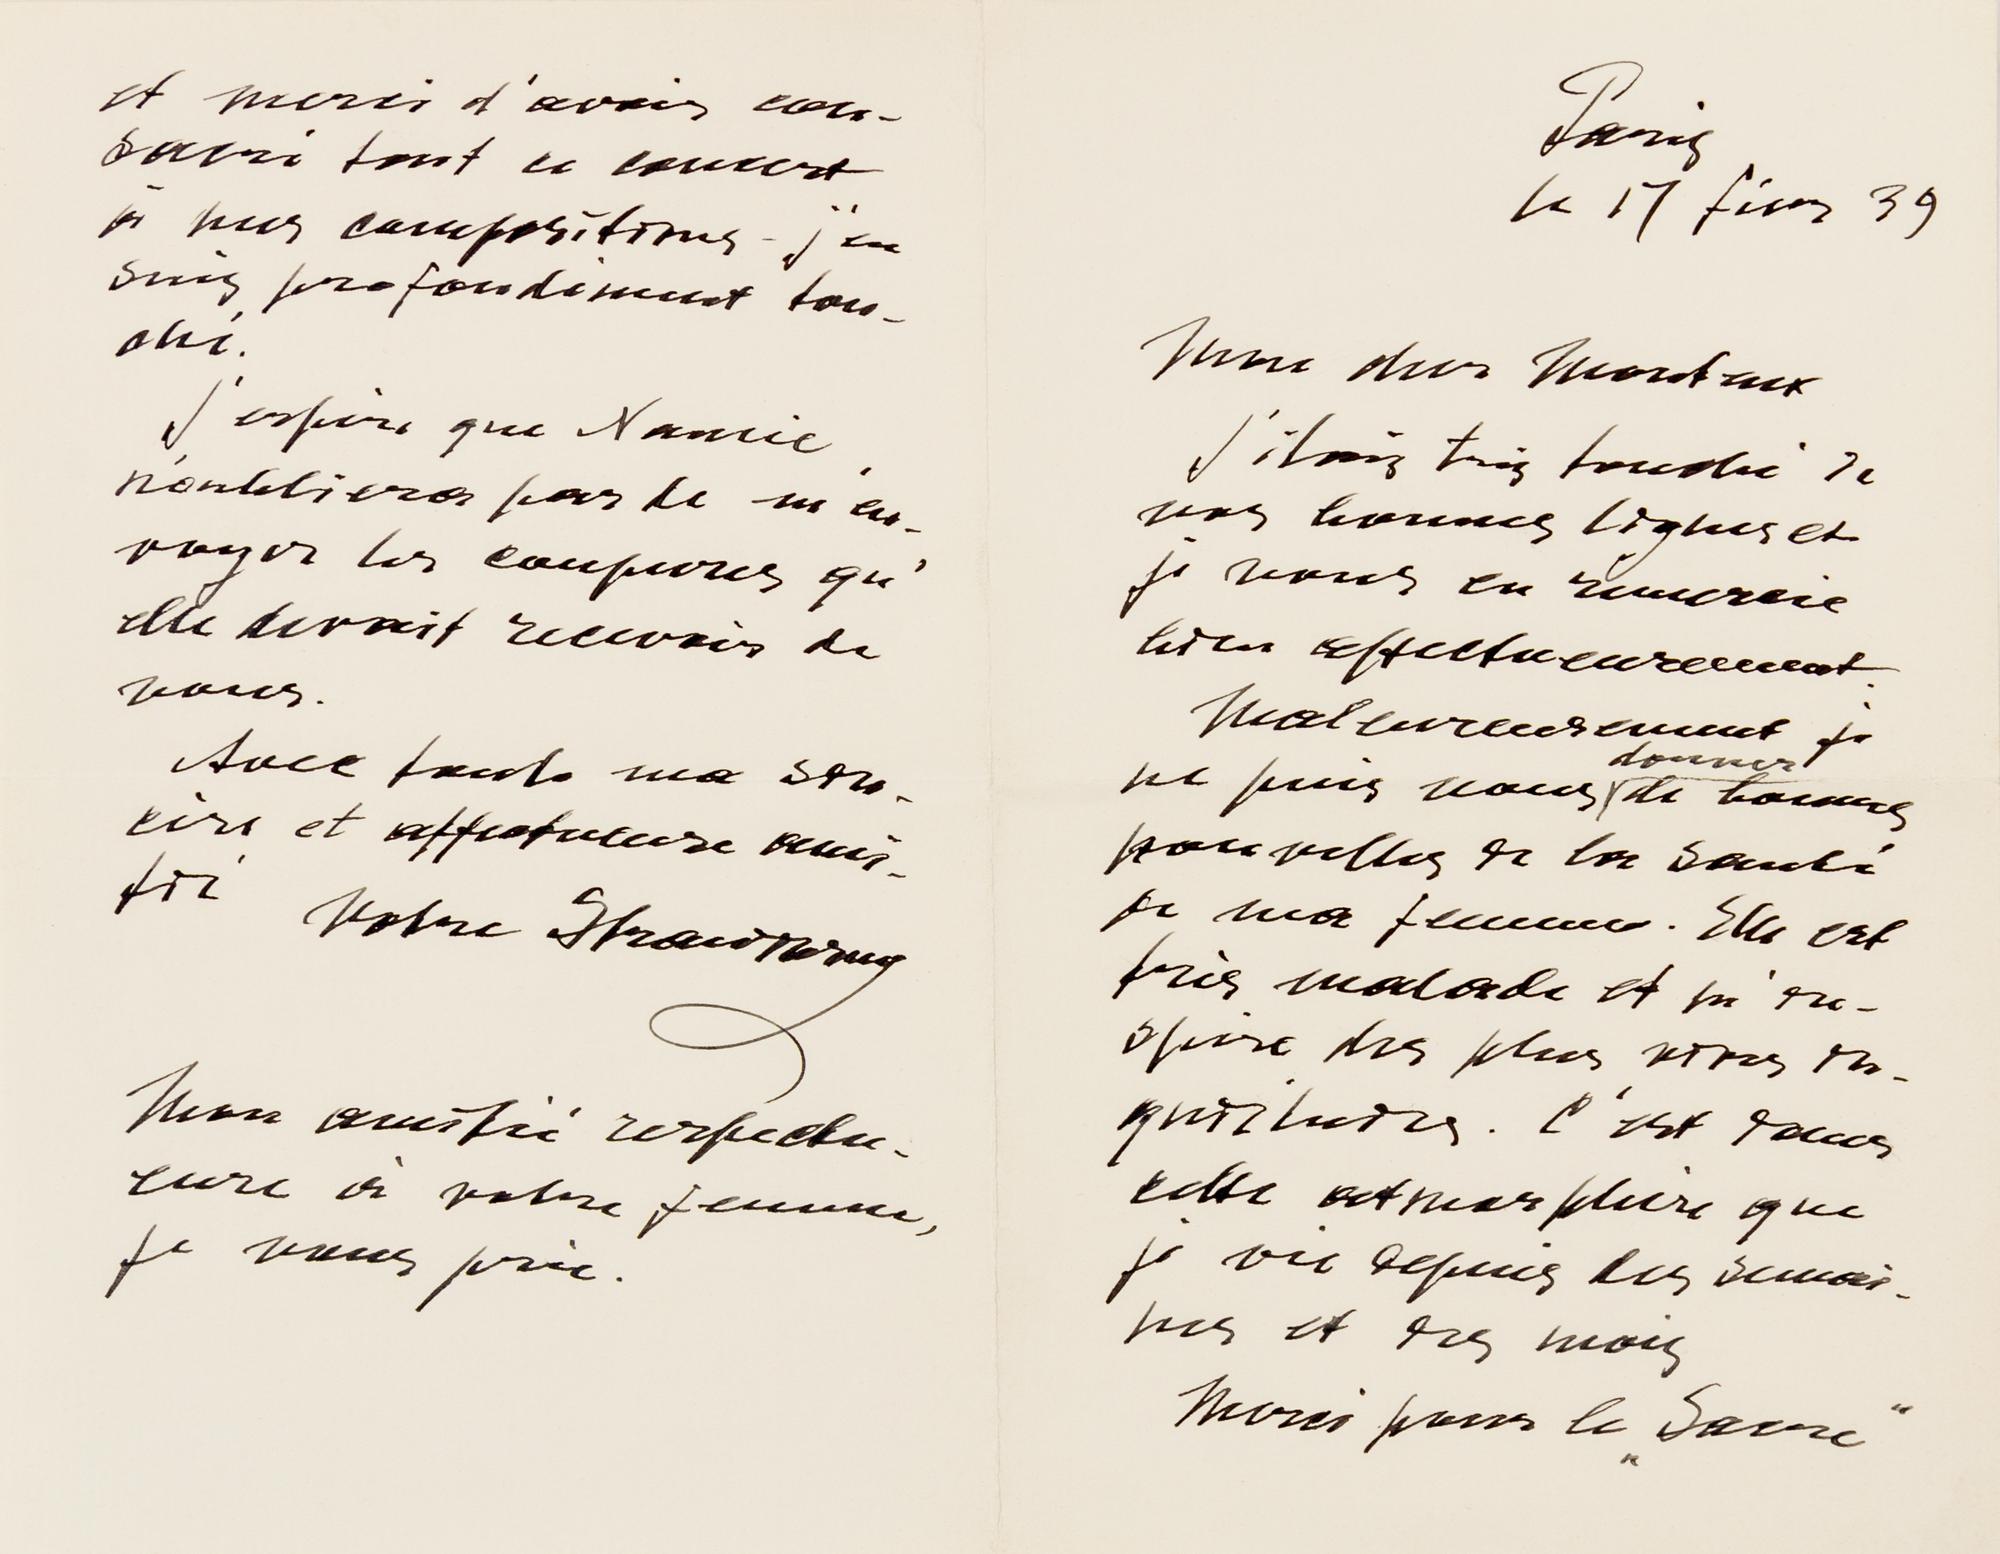 Paris
le 17 févr 39
Mon cher Monteux
J'étais très touché de
vos bonnes lignes et
je vous en remercie
bien affectueusement.
Maleureusement je
donner
ne puis vous de bonnes
nouvelles de la santé
de ma femme. Elle est
très malade et m'in-
spire des plus vives in-
quiétudes. C'est dans
cette atmosphère que
je vis depuis des semai-
nes et des mois
Merci pour le „Sacre“
et merci d'avoir con-
sacré tout ce concert
à mes compositions - j'en
suis profondément tou-
ché.
J'espère que Nancie
n'oubliera pas de m'en-
voyer les coupures qu'
elle devait recevoir de
vous.
Avec toute ma sin-
cère et affectueuse ami-
tié
Votre Strawinsky
Mon amitié respectu-
euse à votre femme,
je vous prie.